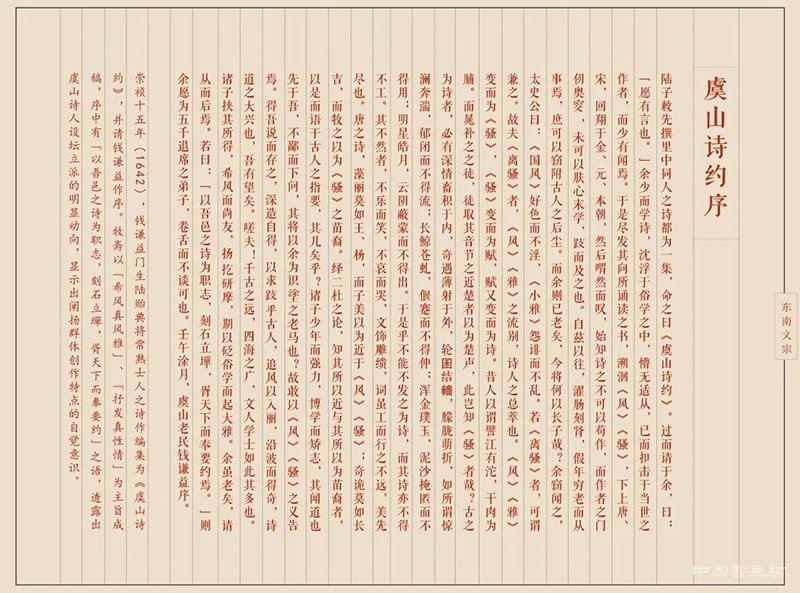 虞山诗约序
陆子敕先撰里中同人之诗都为一集,命之曰《虞山诗约》。过而请于余,曰:
「愿有言也。」余少而学诗,沈浮于俗学之中,懵无适从,已而扣击于当世之
作者,而少有闻焉。于是尽发其向所诵读之书,溯洄《风》《骚》,下上唐、
宋,回翔于金、元、本朝,然后喟然而叹,始知诗之不可以苟作,而作者之门
仞奥窔,未可以肤心末学,跂而及之也。自兹以往,濯肠刻肾,假年穷老而从
事焉,庶可以窃附古人之后尘。而余则已老矣,今将何以长子哉?余窃闻之,
太史公曰:《国风》好色而不淫,《小雅》怨诽而不乱。若《离骚》者,可谓
兼之。故夫《离骚》者,《风》《雅》之流别,诗人之总萃也。《风》《雅》
变而为《骚》,《骚》变而为赋,赋又变而为诗。昔人以谓譬江有沱,干肉为
脯。而晁补之之徒,徒取其音节之近楚者以为楚声,此岂知《骚》者哉?古之
为诗者,必有深情畜积于内,奇遇薄射于外,轮囷结轖,朦胧萌折,如所谓惊
澜奔湍,郁闭而不得流;长鲸苍虬,偃蹇而不得伸;浑金璞玉,泥沙掩匿而不
得用;明星皓月,云阴蔽蒙而不得出。于是乎不能不发之为诗,而其诗亦不得
不工。其不然者,不乐而笑,不哀而哭,文饰雕缋,词虽工而行之不远,美先
尽也。唐之诗,藻丽莫如王、杨,而子美以为近于《风》《骚》;奇诡莫如长
吉,而牧之以为《骚》之苗裔。绎二杜之论,知其所以近与其所以为苗裔者,
以是而语于古人之指要,其几矣乎?诸子少年而强力,博学而矫志,其闻道也
先于吾,不鄙而下问,其将以余为识塗之老马也?故敢以《风》《骚》之义告
焉。得吾说而存之,深造自得,以求跂乎古人,追风以入丽,沿波而得奇,诗
道之大兴也,吾有望矣。嗟夫!千古之远,四海之广,文人学士如此其多也。
诸子挟其所得,希风而尚友,扬扢研摩,期以砭俗学而起大雅。余虽老矣,请
从而后焉。若曰:「以吾邑之诗为职志,刻石立墠,胥天下而奉要约焉。」则
余愿为五千退席之弟子,卷舌而不谈可也。壬午涂月,虞山老民钱谦益序。
崇祯十五年(1642),钱谦益门生陆贻典将常熟士人之诗作编集为《虞山诗
约》,并请钱谦益作序。牧斋以「希风真风雅」、「抒发真性情」为主旨成
稿,序中有「以吾邑之诗为职志,刻石立墠,胥天下而奉要约」之语,透露出
虞山诗人设坛立派的明显动向,显示出阐扬群体创作特点的自觉意识。
东南文宗